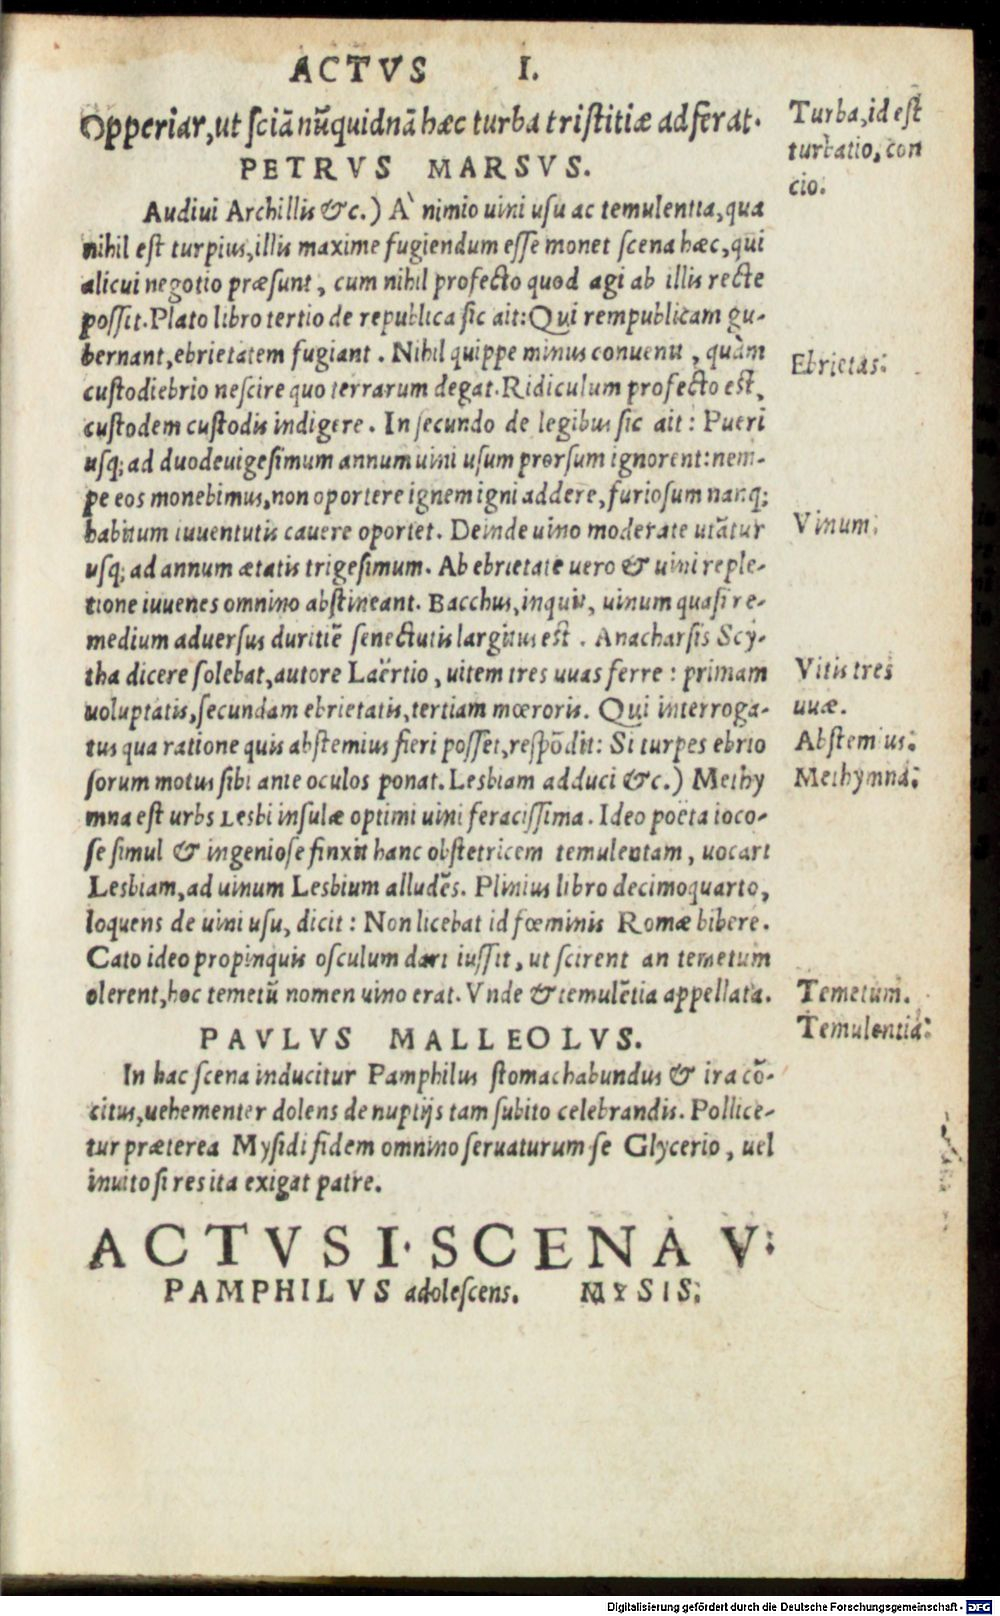 ACTVS I.
Opperiar, ut sciā nūquidnā hæc turba tristitiæ adferat.
Turba, id est
turbatio, con
cio.
PETRVS MARSVS.
Audiui Archillis &c.) A` nimio uini usu ac temulentia, qua
nihil est turpius, illis maxime fugiendum esse monet scena hæc, qui
alicui negotio præsunt, cum nihil profecto quod agi ab illis recte
possit. Plato libro tertio de republica sic ait: Qui rempublicam gu-
bernant, ebrietatem fugiant. Nihil quippe minus conuenit, quàm
Ebrietas.
custodi ebrio nescire quo terrarum degat. Ridiculum profecto est,
custodem custodis indigere. In secundo de legibus sic ait: Pueri
usq; ad duodeuigesimum annum uini usum prorsum ignorent: nem-
pe eos monebimus, non oportere ignem igni addere, furiosum nanq;
habitum iuuentutis cauere oportet. Deinde uino moderate utātur
Vinum.
usq; ad annum ætatis trigesimum. Ab ebrietate uero & uini reple-
tione iuuenes omnino abstineant. Bacchus, inquit, uinum quasi re-
medium aduersus duritiē senectutis largitus est. Anacharsis Scy-
tha dicere solebat, autore Laërtio, uitem tres uuas ferre: primam
Vitis tres
uoluptatis, secundam ebrietatis, tertiam mœroris. Qui interroga-
uuæ.
tus qua ratione quis abstemius fieri posset, respōdit: Si turpes ebrio
Abstemius.
sorum motus sibi ante oculos ponat. Lesbiam adduci &c.) Methy
Methymna.
mna est urbs Lesbi insulæ optimi uini feracissima. Ideo poëta ioco-
se simul & ingeniose finxit hanc obstetricem temulentam, uocari
Lesbiam, ad uinum Lesbium alludēs. Plinius libro decimoquarto,
loquens de uini usu, dicit: Non licebat id fœminis Romæ bibere.
Cato ideo propinquis osculum dari iussit, ut scirent an temetum
olerent, hoc temetū nomen uino erat. Vnde & temulētia appellata.
Temetum.
PAVLVS MALLEOLVS.
Temulentia.
In hac scena inducitur Pamphilus stomachabundus & ira cō-
citus, uehementer dolens de nuptijs tam subito celebrandis. Pollice-
tur præterea Mysidi fidem omnino seruaturum se Glycerio, uel
inuito si res ita exigat patre.
ACTVS I. SCENA V.
PAMPHILVS adolescens. MYSIS.
Digitalisierung gefördert durch die Deutsche Forschungsgemeinschaft - DFG